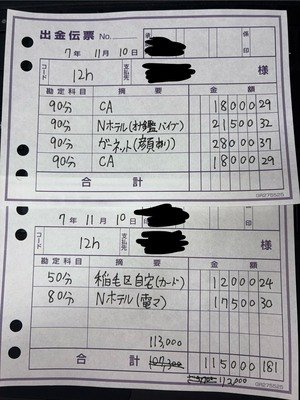 出金伝票 No.
係印
7年 11月 10日
コード 12h 支払先 様
勘定科目 摘要 金額
90分 CA 18000 29
90分 Nホテル(オ鑑バイブ) 21500 32
90分 ガーネット(顔有り) 28000 37
90分 CA 18000 29
合計
GR275525
7年 11月 10日
コード 12h 支払先 様
勘定科目 摘要 金額
50分 稲毛区自宅(カード) 12000 24
80分 Nホテル(電マ) 17500 30
113,000
合計 107,300 115000 181
113,000
GR275525